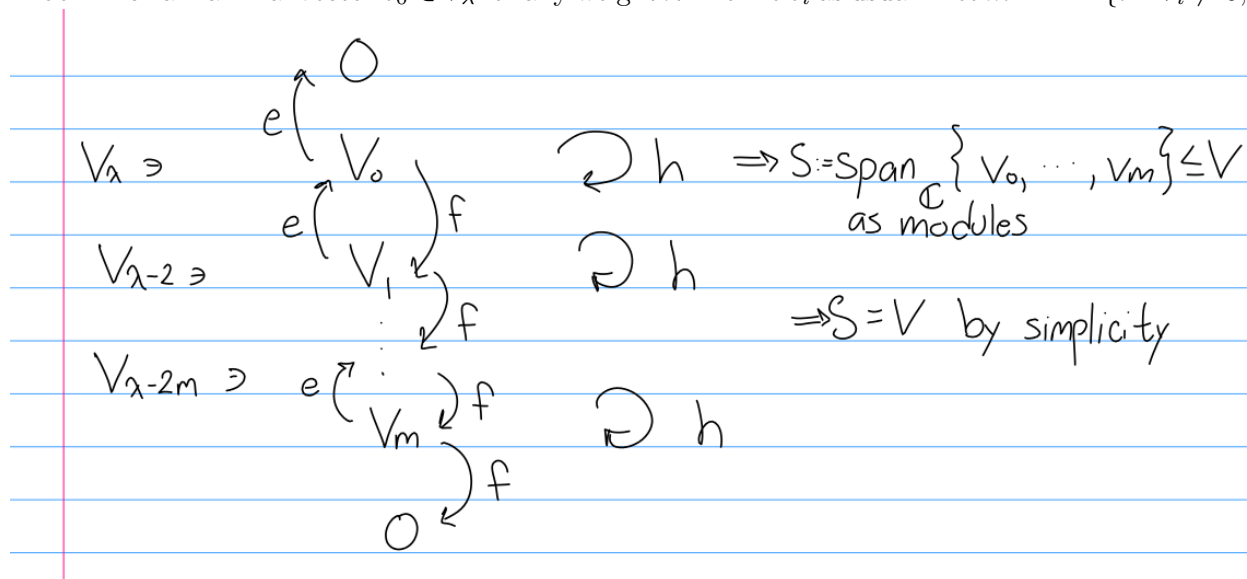 O
e
V_λ ∋ V_0 h ⟹ S:=span_ℂ {V_0, ⋯, V_m} ≤ V
as modules
e f
V_{λ-2} ∋ V_1 h
f ⟹ S = V by simplicity
V_{λ-2m} ∋ e f
V_m h
f
O